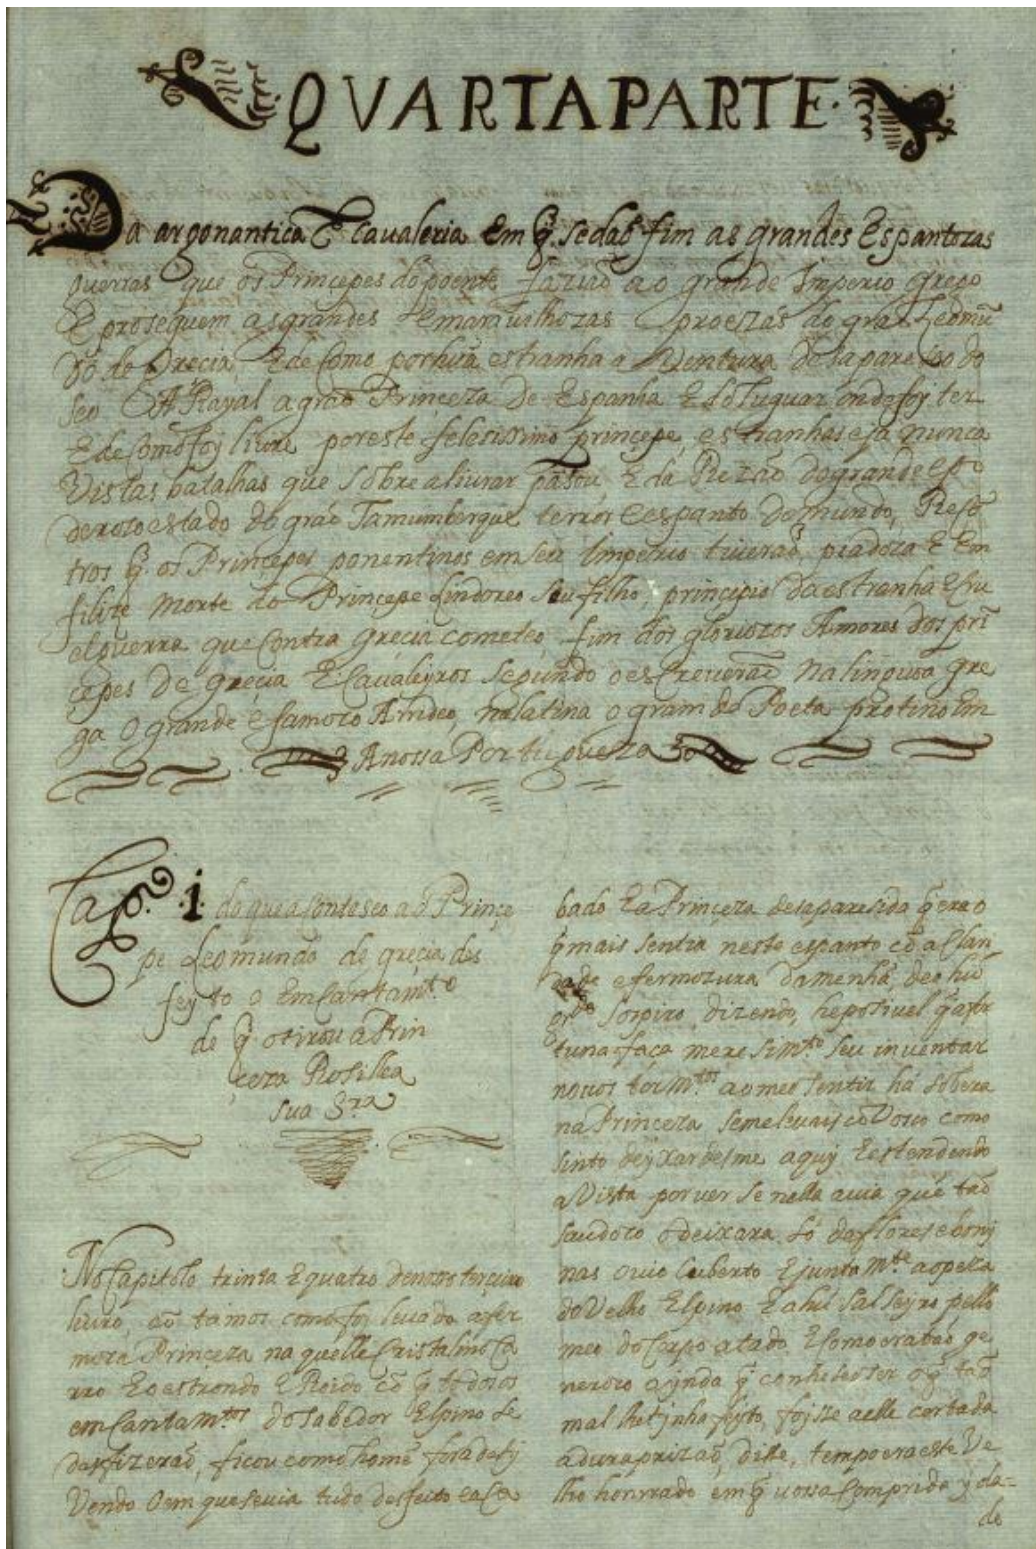 QVARTA PARTE.
Da argonantica E cavaleria Em q̃. se daõ fim as grandes Espantozas
guerras que os Princepes do poente faziaõ ao grande Imperio grego
E proseguem as grandes E marauilhozas proezas do graõ Leomũ
do de Grecia, E de Como por hũa estranha aVentura desapareseo do
seo ARayal a graõ Princeza de Espanha E do Luguar onde foj ter
E de Como foj liure por este felesissimo princepe, estranhas e ja nunca
Vistas batalhas que sobre a liurar pasou, E da Rezaõ do grande e
deroto estado do graõ Tamumberque terror e espanto do mundo, Refẽ
tros q̃. os Princepes ponentinos em seu Imperio tiueraõ, piadoza E Em
filize morte do Princepe Lindoreo seu filho, principio da estranha E cru
el guerra que Contra grecia cometeo, fim dos gloriozos Amores dos prĩ
cepes de grecia E Cavaleyros segundo o escreveraõ na lingoa gre
ga o grande e famozo Arideo, na latina o gram do Poeta protino Em
A nossa Portugueza
Capo. .1. do que aContoseo aõ Prince
pe Leomundo de grecia, des
feyto o EmCantamto.
de q̃. o tirou a Prin
ceza Rosilea
sua Sra
No Capitolo trinta E quatro de nosso terceiro
liuro, cõ tamos como foj leuado a fer
moza Princeza na quelle Cristalino Ca
rro E o estrondo E Roido cõ q̃ todos os
emCantamtos do sabedor Elpino se
desfizeraõ, ficou como home fora de sy
Vendo o em que se via tudo desfeito e aca
bado E a Princeza desaparesida q̃ era o
q̃ mais sentia neste espanto cõ a Clari
dade e fermozura da menhã, deo hũ
grde sospiro, dizendo, he posiuel q̃ a for
tuna faça meresimto. seu inventar
nouos tormtos. ao meo sentir, há sobera
na Princeza se me leuais cõ Vosco como
sinto deyxardesme aquy E estendendo
a Vista por ver se nella auia que taõ
saudozo o deixara, só das flores e boni
nas o uio Cuberto E juntamte. ao pe da
do Velho Elpino E a hũ salseyro pello
meo do Corpo atado. E Como era taõ ge
nerozo aynda q̃ conheseo ser o q̃ taõ
mal lhe tinha feyto, fojsse a elle cortada
a dura prizaõ, disse, tempo era este Ve
lho honrrado em q̃ uossa Comprida yda-
de